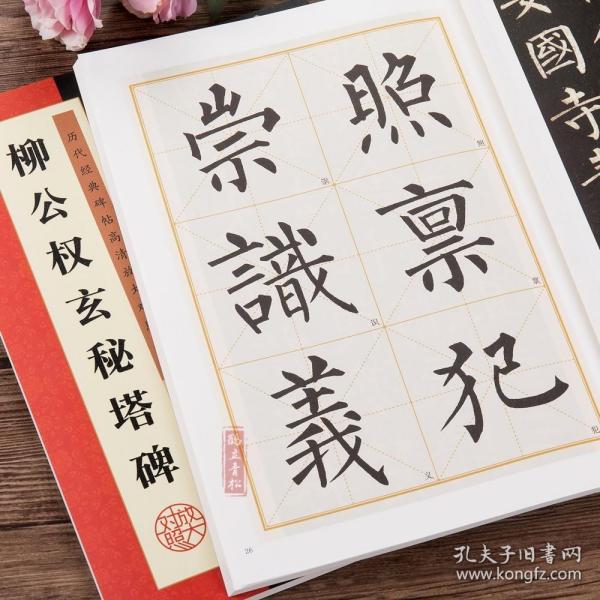 柳公权玄秘塔碑
历代经典碑帖高清放大对
放大对照
照禀犯
崇識義
照
禀
犯
崇
识
义
26
鹤立青松
國寺
孔夫子旧书网
www.kongfz.com